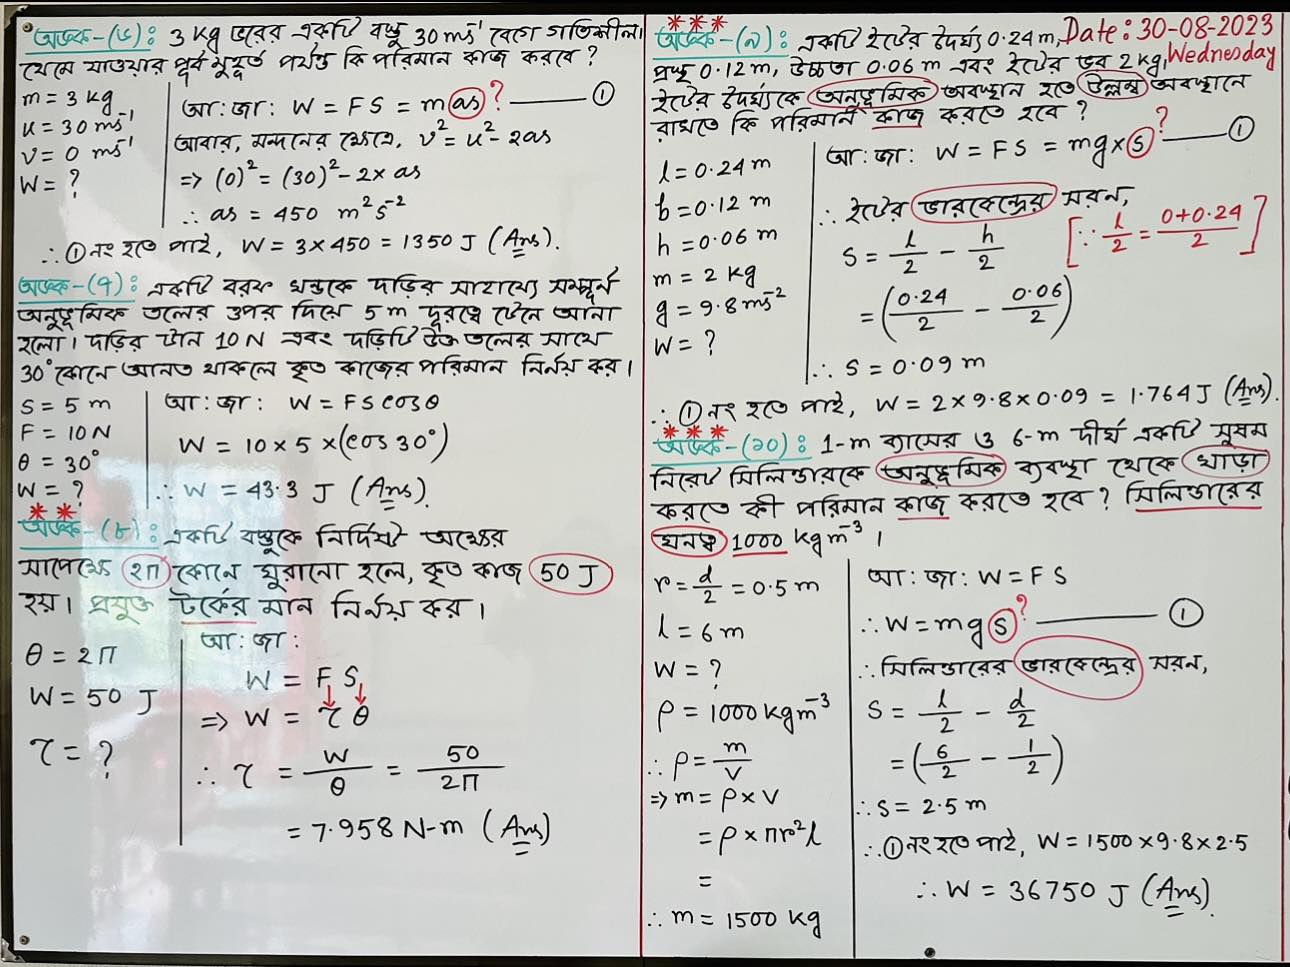 অংক-(৬): 3 kg ভরের একটি বস্তু 30 ms⁻¹ বেগে গতিশীল।
থেমে যাওয়ার পূর্ব মুহূর্ত পর্যন্ত কি পরিমান কাজ করবে?
m = 3 kg
u = 30 ms⁻¹
v = 0 ms⁻¹
W = ?
আ: জা: W = FS = m as? ——— ①
আবার, মন্দনের ক্ষেত্রে, v² = u² - 2as
⇒ (0)² = (30)² - 2 × as
∴ as = 450 m²s⁻²
∴ ① নং হতে পাই, W = 3×450 = 1350 J (Ans).
অংক-(৭): একটি বরফ খন্ডকে দড়ির সাহায্যে সম্পূর্ন
অনুভূমিক তলের উপর দিয়ে 5 m দূরত্বে টেনে আনা
হলো। দড়ির টান 10 N এবং দড়িটি উক্ত তলের সাথে
30° কোনে আনত থাকলে কৃত কাজের পরিমান নির্নয় কর।
S = 5 m
F = 10 N
θ = 30°
W = ?
আ: জা: W = FS cosθ
W = 10 × 5 × (cos 30°)
∴ W = 43.3 J (Ans).
* *
অংক-(৮): একটি বস্তুকে নির্দিষ্ট অক্ষের
সাপেক্ষে 2π কোনে ঘুরানো হলে, কৃত কাজ 50 J
হয়। প্রযুক্ত টর্কের মান নির্নয় কর।
θ = 2π
W = 50 J
τ = ?
আ: জা:
W = F S
↓ ↓
⇒ W = τ θ
∴ τ = W/θ = 50/2π
= 7.958 N-m (Ans)
* * *
অংক-(৯): একটি ইটের দৈর্ঘ্য 0.24 m, Date: 30-08-2023
প্রস্থ 0.12 m, উচ্চতা 0.06 m এবং ইটের ভর 2 kg, Wednesday
ইটের দৈর্ঘ্যকে অনুভূমিক অবস্থান হতে উল্লম্ব অবস্থানে
রাখতে কি পরিমান কাজ করতে হবে?
l = 0.24 m
b = 0.12 m
h = 0.06 m
m = 2 kg
g = 9.8 ms⁻²
W = ?
আ: জা: W = FS = mg × S? ——— ①
∴ ইটের ভারকেন্দ্রের সরন,
S = l/2 - h/2 [∵ l/2 = (0+0.24)/2]
= (0.24/2 - 0.06/2)
∴ S = 0.09 m
∴ ① নং হতে পাই, W = 2×9.8×0.09 = 1.764 J (Ans).
* * *
অংক-(১০): 1-m ব্যাসের ও 6-m দীর্ঘ একটি সুষম
নিরেট সিলিন্ডারকে অনুভূমিক ব্যবস্থা থেকে খাড়া
করতে কী পরিমান কাজ করতে হবে? সিলিন্ডারের
ঘনত্ব 1000 kgm⁻³।
r = d/2 = 0.5 m
l = 6 m
W = ?
ρ = 1000 kgm⁻³
∴ ρ = m/V
⇒ m = ρ × V
= ρ × πr²l
=
∴ m = 1500 kg
আ: জা: W = FS
∴ W = mg S? ——— ①
∴ সিলিন্ডারের ভারকেন্দ্রের সরন,
S = l/2 - d/2
= (6/2 - 1/2)
∴ S = 2.5 m
∴ ① নং হতে পাই, W = 1500 × 9.8 × 2.5
∴ W = 36750 J (Ans).